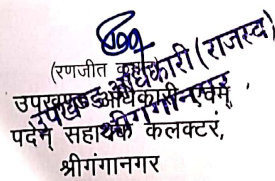 (रणजीत कुमार)
उपखण्ड अधिकारी एवम्
पदेन सहायक कलक्टर,
श्रीगंगानगर
उपखण्ड अधिकारी (राजस्व)
श्रीगंगानगर